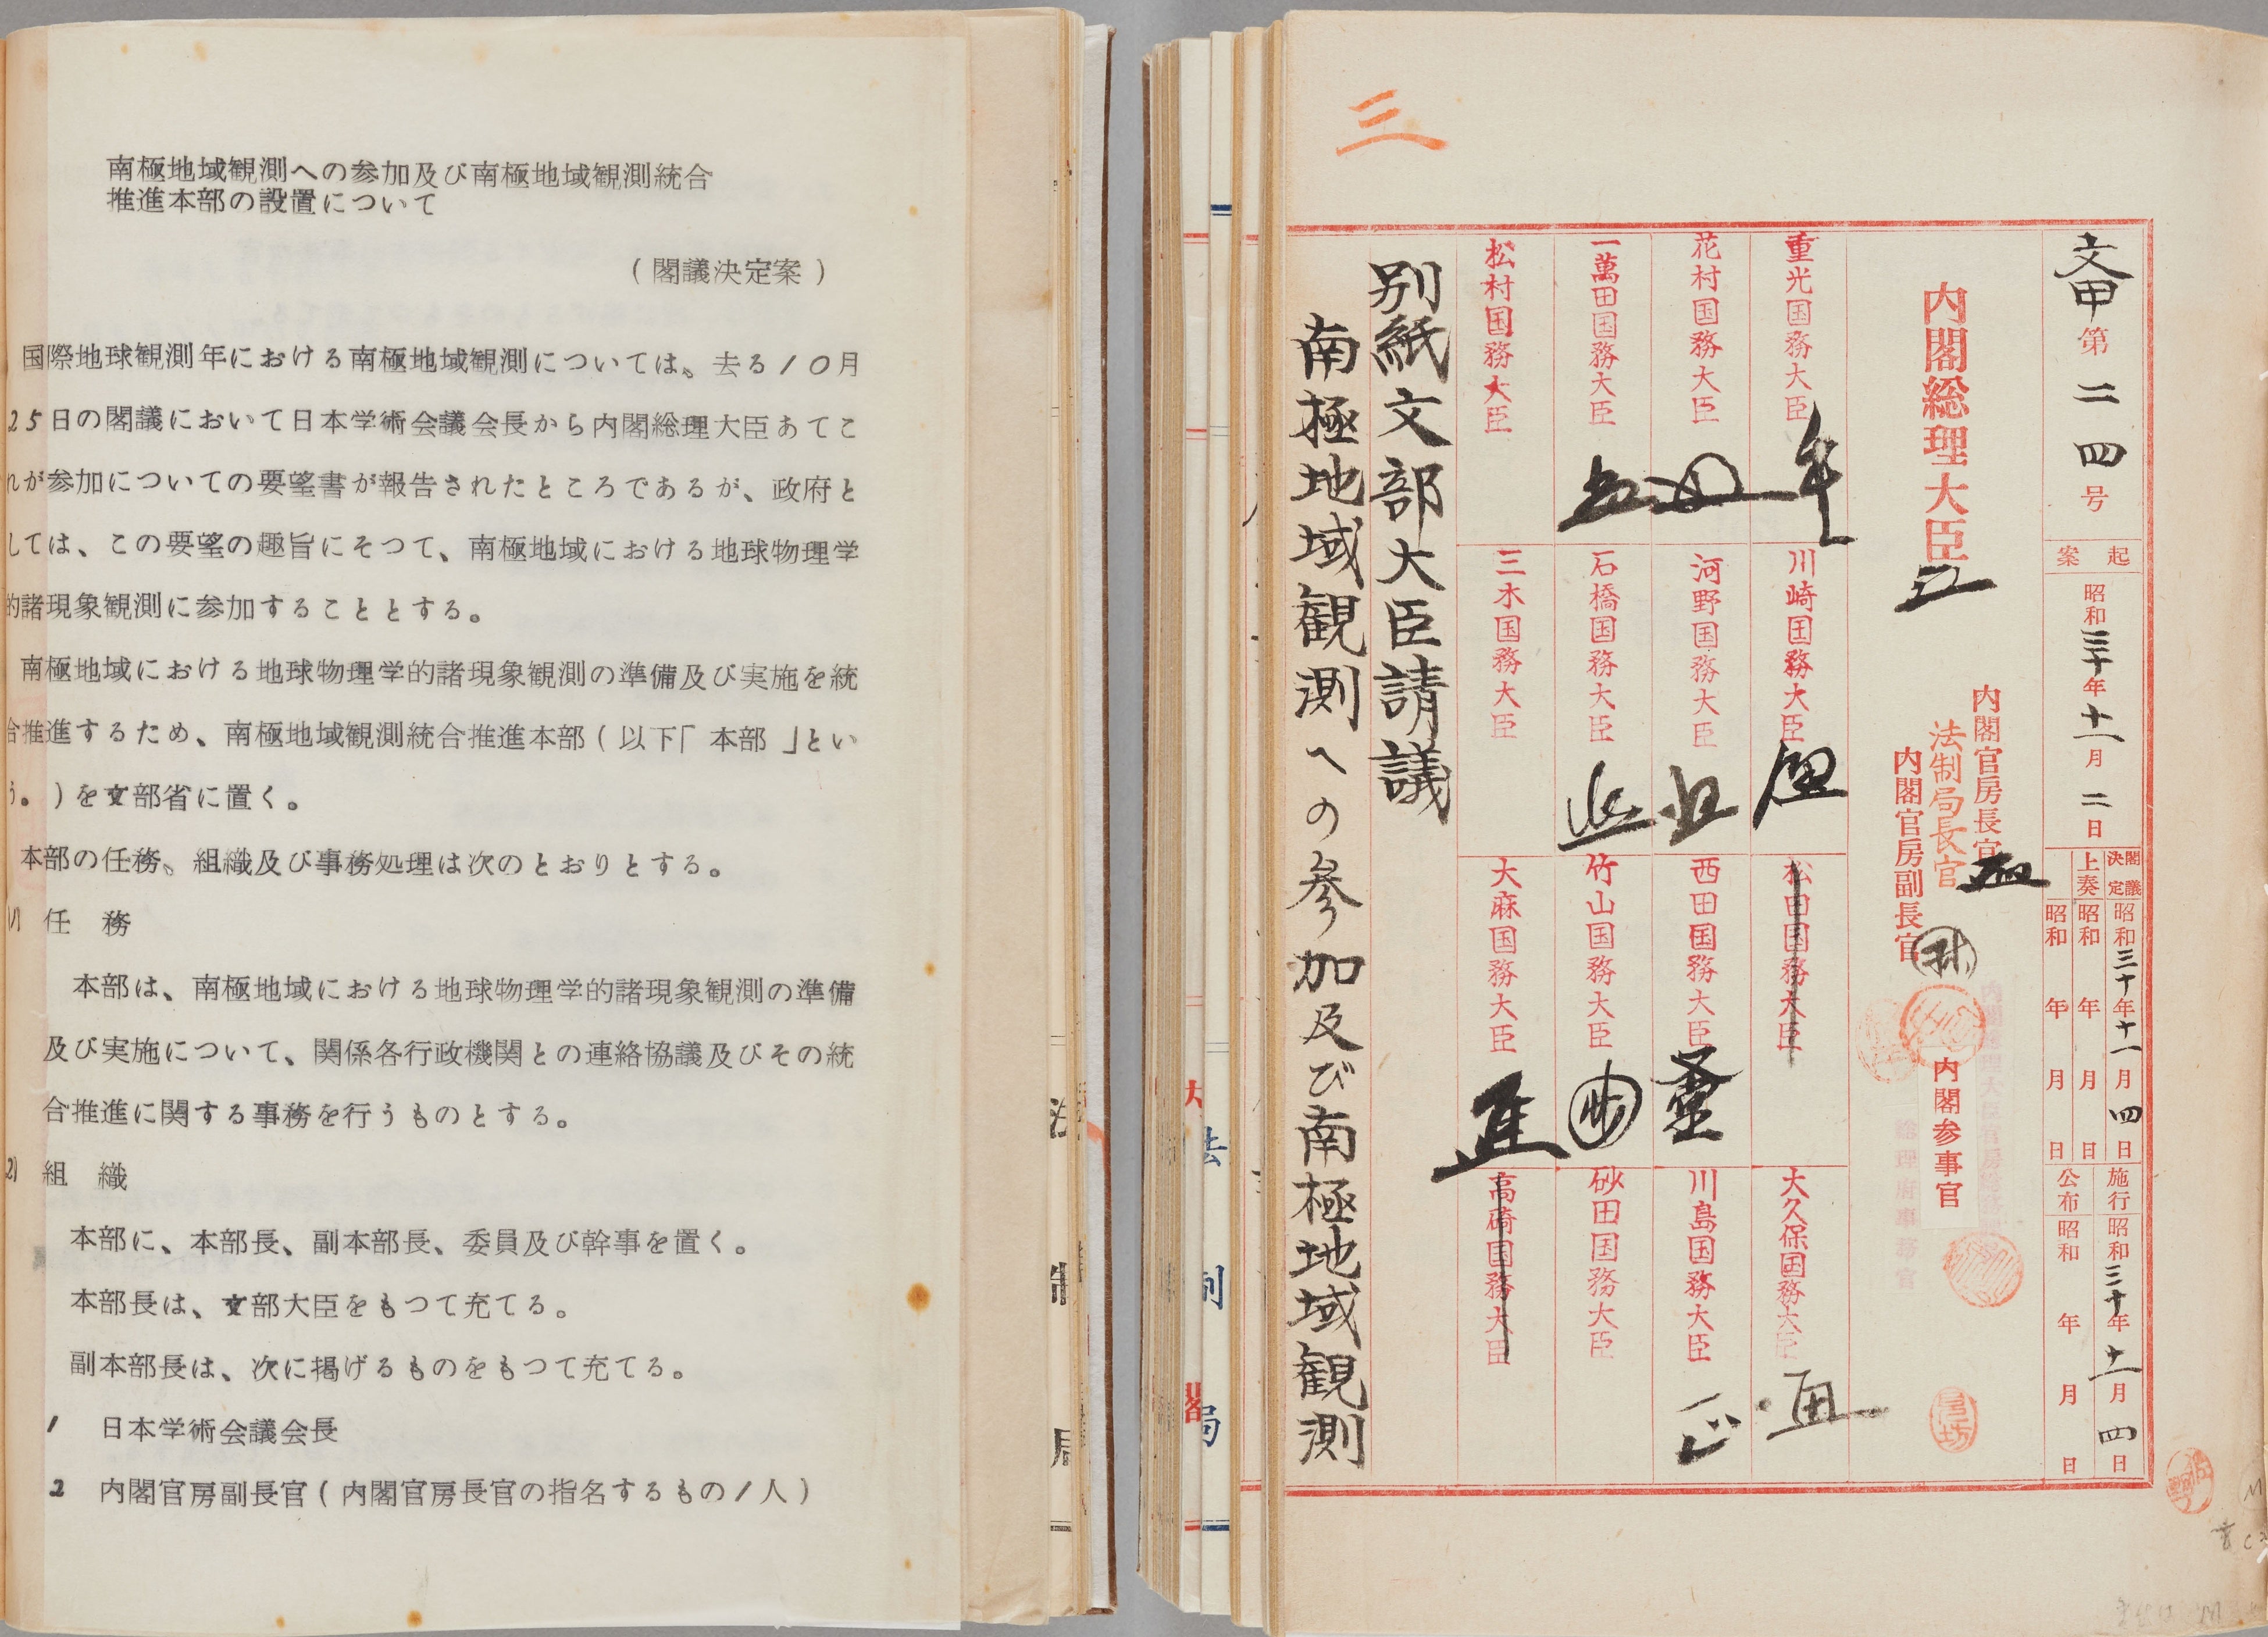 南極地域観測への参加及び南極地域観測統合
推進本部の設置について
(閣議決定案)
国際地球観測年における南極地域観測については、去る10月
25日の閣議において日本学術会議会長から内閣総理大臣あてこ
れが参加についての要望書が報告されたところであるが、政府と
しては、この要望の趣旨にそつて、南極地域における地球物理学
的諸現象観測に参加することとする。
南極地域における地球物理学的諸現象観測の準備及び実施を統
合推進するため、南極地域観測統合推進本部(以下「本部」とい
う。)を文部省に置く。
本部の任務、組織及び事務処理は次のとおりとする。
任 務
本部は、南極地域における地球物理学的諸現象観測の準備
及び実施について、関係各行政機関との連絡協議及びその統
合推進に関する事務を行うものとする。
2) 組 織
本部に、本部長、副本部長、委員及び幹事を置く。
本部長は、文部大臣をもつて充てる。
副本部長は、次に掲げるものをもつて充てる。
1 日本学術会議会長
2 内閣官房副長官(内閣官房長官の指名するもの1人)
三
文甲第二四号
起案
昭和三十年十一月二日
閣議決定 昭和三十年十一月四日
上奏 昭和 年 月 日
昭和 年 月 日
施行 昭和三十年十一月四日
公布 昭和 年 月 日
内閣総理大臣
内閣官房長官
法制局長官
内閣官房副長官
内閣参事官
重光国務大臣
川崎国務大臣
松田国務大臣
大久保国務大臣
花村国務大臣
河野国務大臣
西田国務大臣
川島国務大臣
一萬田国務大臣
石橋国務大臣
竹山国務大臣
砂田国務大臣
松村国務大臣
三木国務大臣
大麻国務大臣
高碕国務大臣
別紙文部大臣請議
南極地域観測への参加及び南極地域観測